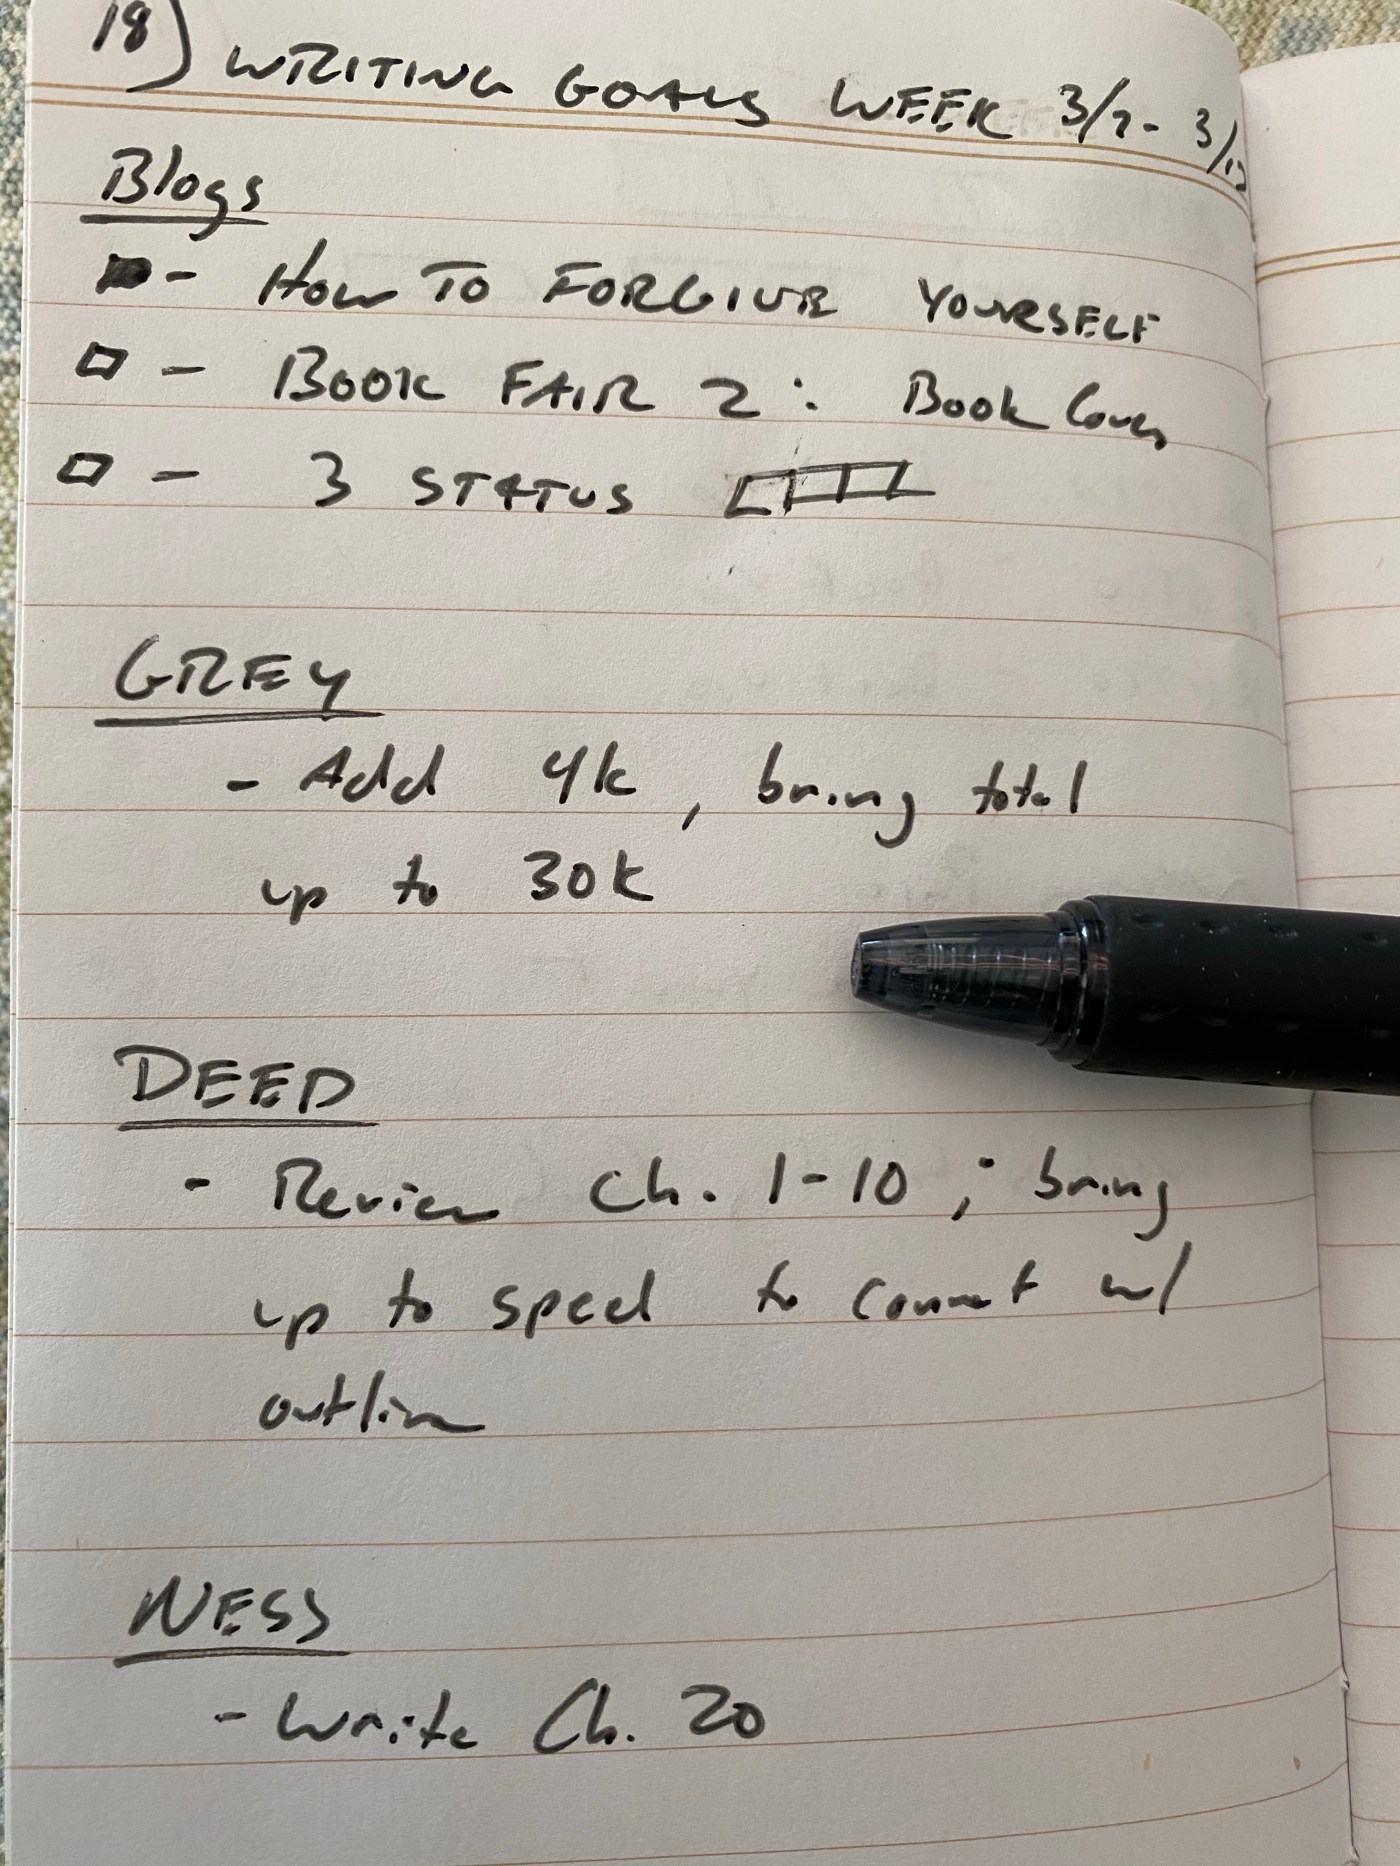 18) WRITING GOALS WEEK 3/7 - 3/12
Blogs
- HOW TO FORGIVE YOURSELF
- BOOK FAIR 2: Book Covers
- 3 STATUS
GREY
- Add 4k, bring total
up to 30k
DEED
- Review Ch. 1-10; bring
up to speed to connect w/
outline
NESS
- Write Ch. 20